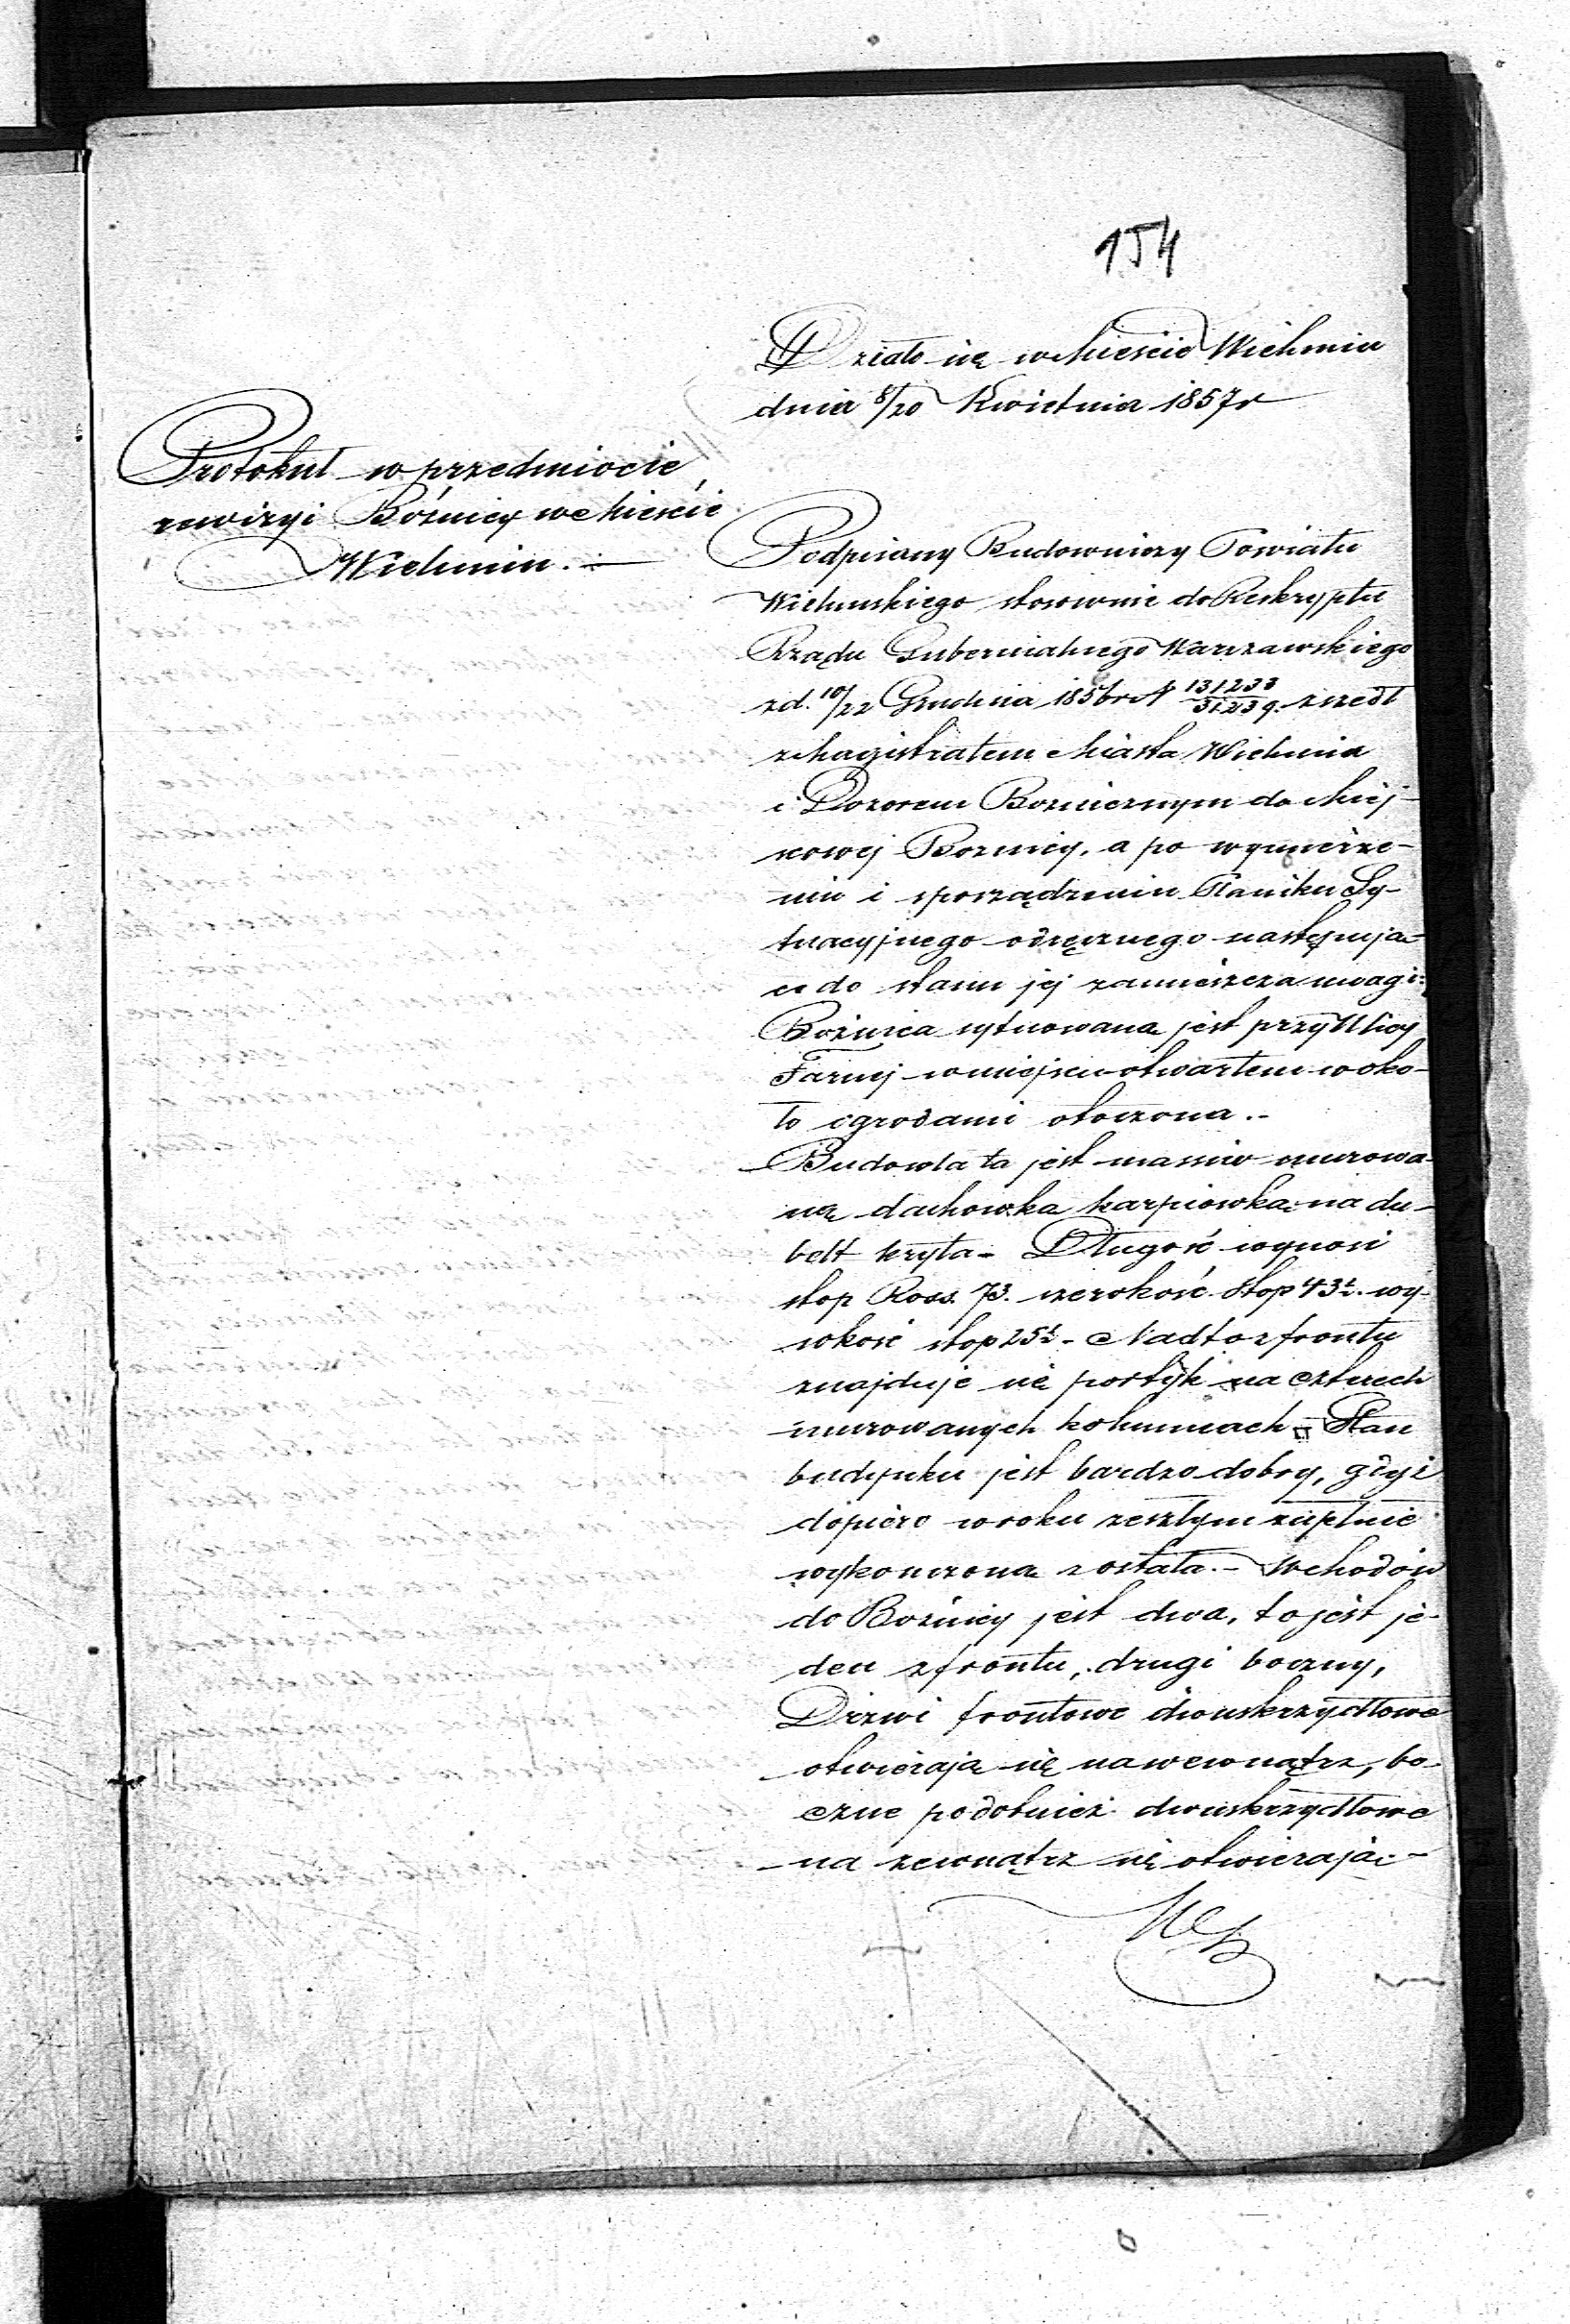 154
Działo się w Mieście Wieluniu
dnia 8/20 Kwietnia 1857 r
Protokuł w przedmiocie
rewizyi Bóżnicy w Mieście
Wieluniu. —
Podpisany Budowniczy Powiatu
Wieluńskiego stosownie do Reskryptu
Rządu Gubernialnego Warszawskiego
z d. 10/22 Grudnia 1856 r N 131233/31239. zszedł
z Magistratem Miasta Wielunia
i Dozorem Bożniczym do Miej-
scowej Bożnicy, a po wymierze-
niu i sporządzeniu Planiku Sy-
tuacyjnego odręcznego następują-
ce do stanu jej zamieszcza uwagi:
Bożnica sytuowana jest przy Ulicy
Farnej w miejscu otwartem woko-
ło ogrodami otoczona.-
Budowla ta jest massiw murowa-
na dachówką karpiówką na du-
belt kryta - Długość wynosi
stop Ross. 73. szerokość stop 43½. wy-
sokość stop 25½ - Nadto z frontu
znajduje się portyk na czterech
murowanych kolumnach - Stan
budynku jest bardzo dobry, gdyż
dopiero w roku zeszłym zupełnie
wykończona została.- Wchodów
do Bożnicy jest dwa, to jest je-
den z frontu, drugi boczny,
Drzwi frontowe dwuskrzydłowe
otwierają się na wewnątrz, bo-
czne podobnież dwuskrzydłowe
na zewnątrz się otwierają.-